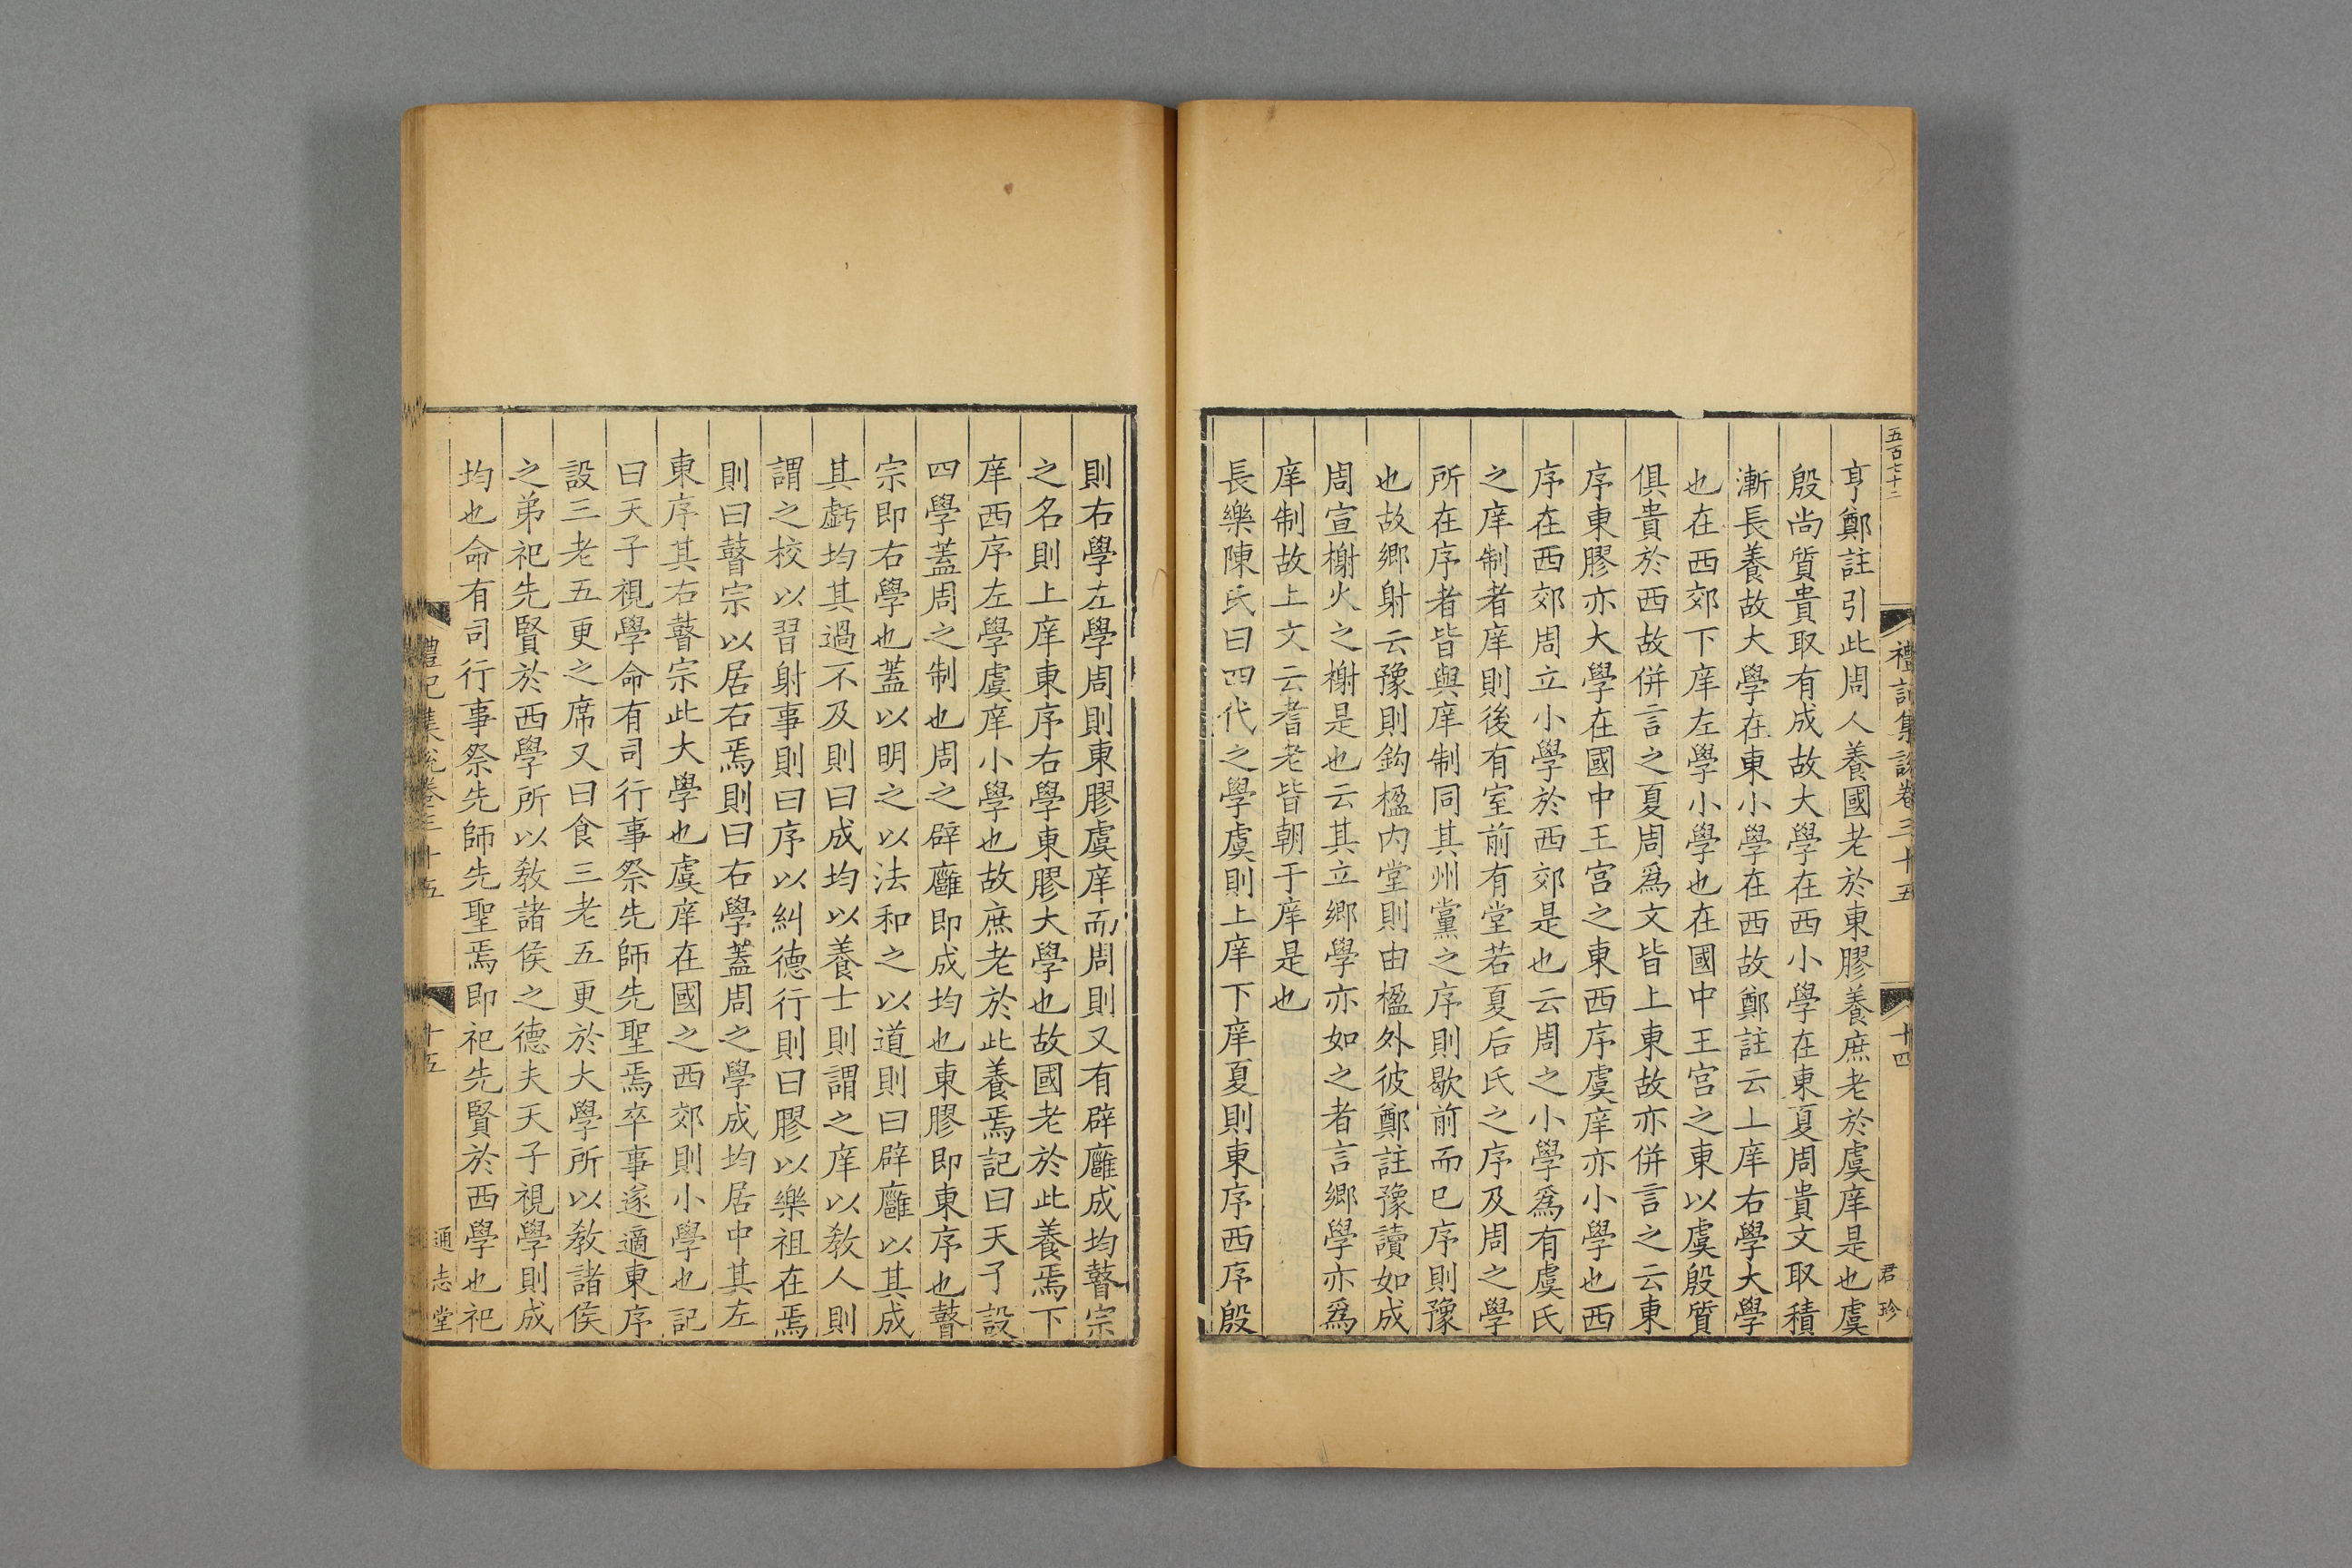 五百七十二
禮記集說卷三十五
十四
君珍
亨鄭註引此周人養國老於東膠養庶老於虞庠是也虞
殷尚質貴取有成故大學在西小學在東夏周貴文取積
漸長養故大學在東小學在西故鄭註云上庠右學大學
也在西郊下庠左學小學也在國中王宮之東以虞殷質
俱貴於西故併言之夏周爲文皆上東故亦併言之云東
序東膠亦大學在國中王宮之東西序虞庠亦小學也西
序在西郊周立小學於西郊是也云周之小學爲有虞氏
之庠制者庠則後有室前有堂若夏后氏之序及周之學
所在序者皆與庠制同其州黨之序則歇前而已序則豫
也故鄉射云豫則鈎楹内堂則由楹外彼鄭註豫讀如成
周宣榭火之榭是也云其立鄉學亦如之者言鄉學亦爲
庠制故上文云耆老皆朝于庠是也
長樂陳氏曰四代之學虞則上庠下庠夏則東序西序殷
則右學左學周則東膠虞庠而周則又有辟廱成均瞽宗
之名則上庠東序右學東膠大學也故國老於此養焉下
庠西序左學虞庠小學也故庶老於此養焉記曰天子設
四學蓋周之制也周之辟廱即成均也東膠即東序也瞽
宗即右學也蓋以明之以法和之以道則曰辟廱以其成
其虧均其過不及則曰成均以養士則謂之庠以敎人則
謂之校以習射事則曰序以糾德行則曰膠以樂祖在焉
則曰瞽宗以居右焉則曰右學蓋周之學成均居中其左
東序其右瞽宗此大學也虞庠在國之西郊則小學也記
曰天子視學命有司行事祭先師先聖焉卒事遂適東序
設三老五更之席又曰食三老五更於大學所以敎諸侯
之弟祀先賢於西學所以敎諸侯之德夫天子視學則成
均也命有司行事祭先師先聖焉即祀先賢於西學也祀
禮記集說卷三十五
十五
通志堂